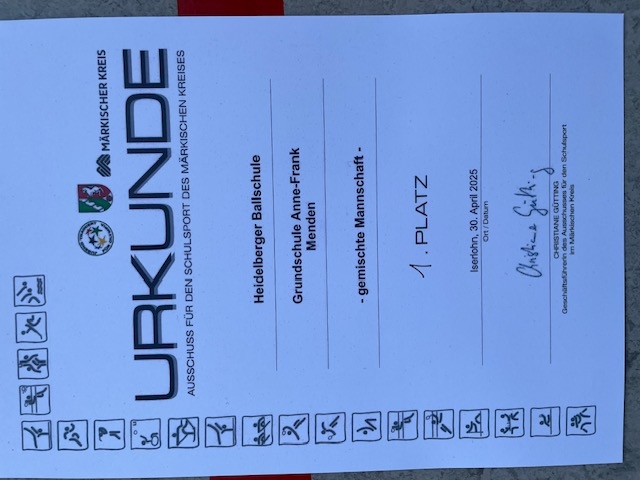 MÄRKISCHER KREIS
URKUNDE
AUSSCHUSS FÜR DEN SCHULSPORT DES MÄRKISCHEN KREISES
Heidelberger Ballschule
Grundschule Anne-Frank
Menden
- gemischte Mannschaft -
1. PLATZ
Iserlohn, 30. April 2025
Ort / Datum
Christiane Gütting
CHRISTIANE GÜTTING
Geschäftsführerin des Ausschusses für den Schulsport
im Märkischen Kreis